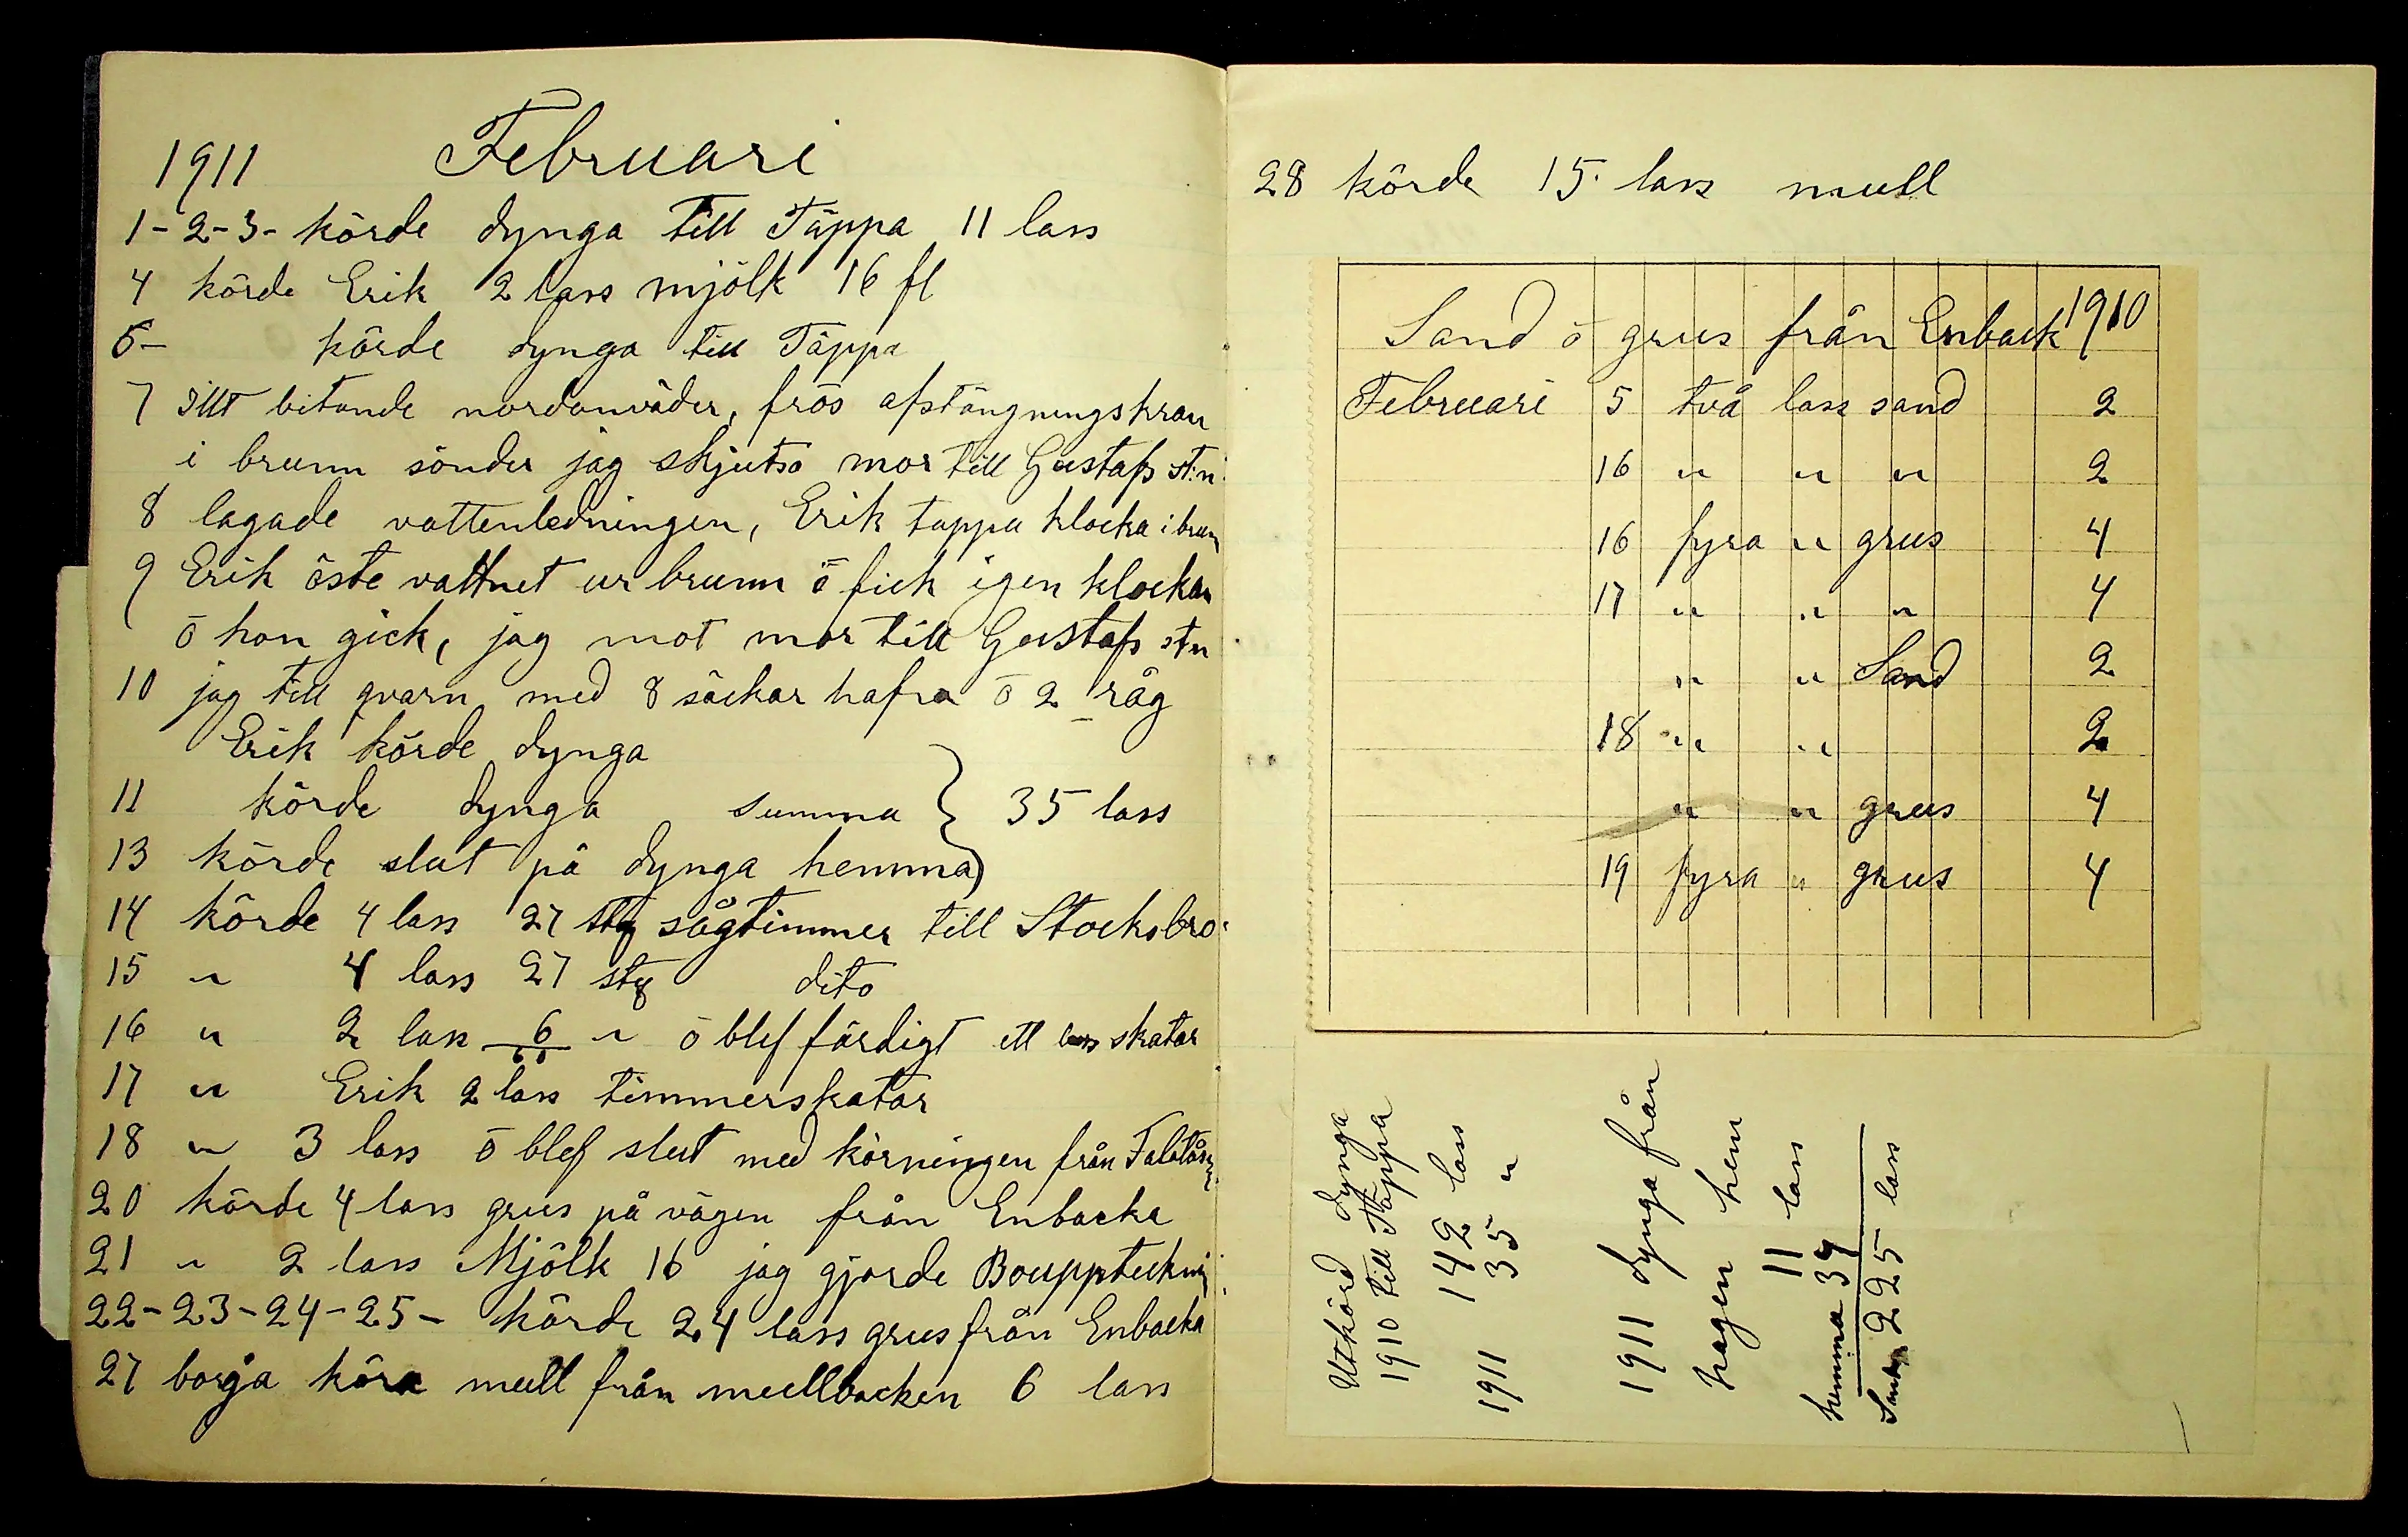 1911 Februari
1-2-3- körde dynga till Täppa 11 lass
4 körde Erik 2 lass mjölk 16 fl
6- körde dynga till Täppa
7 illt bitande nordanväder, frös afstängningskran
i brunn sönder jag skjutsa mor till Gustafs st:n
8 lagade vattenledningen, Erik tappa klocka i brunn
9 Erik öste vattnet ur brunn ō fick igen klockan
ō hon gick, jag mot mor till Gustafs stn
10 jag till qvarn med 8 säckar hafra ō 2 råg
Erik körde dynga
11 körde dynga summa } 35 lass
13 körde slut på dynga hemma
14 körde 4 lass 27 stg sågtimmer till Stocksbro
15 " 4 lass 27 stg dito
16 " 2 lass 6 " ō blef färdigt ett lass skatar
17 " Erik 2 lass timmerskatar
18 " 3 lass ō blef slut med körningen från
20 körde 4 lass grus på vägen från Enbacka
21 " 2 lass Mjölk 16 jag gjorde Bouppteckning
22-23-24-25- körde 24 lass grus från Enbacka
27 börja köra mull från mullbacken 6 lass
28 körde 15 lass mull
Sand ō grus från Enback 1910
Februari 5 två lass sand 2
16 " " " 2
16 fyra " grus 4
17 " " " 4
" " Sand 2
18 " " 2
" " grus 4
19 fyra " grus 4
Utkörd dynga
1910 till Täppa
142 lass
1911 35 "
1911 dynga från
hagen hem
11 lass
hemma 37
225 lass